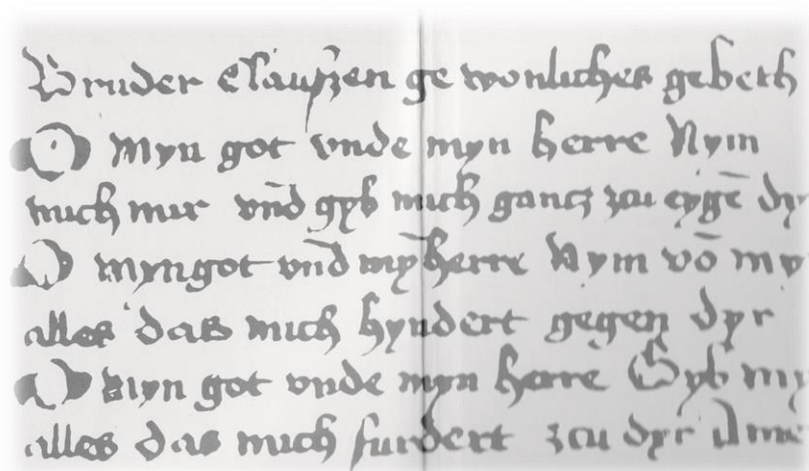 Bruder Claußen ge wonliches gebeth
O Myn got vnde myn herre Nym
mich mir vnd̄ gyb mich gancz zcu eygē dy
O myn got vnd̄ mȳ herre Nym vō my
alles das mich hyndert gegen dyr
O Myn got vnde myn herre Gyb my
alles das mich furdert zcu dyr Ame